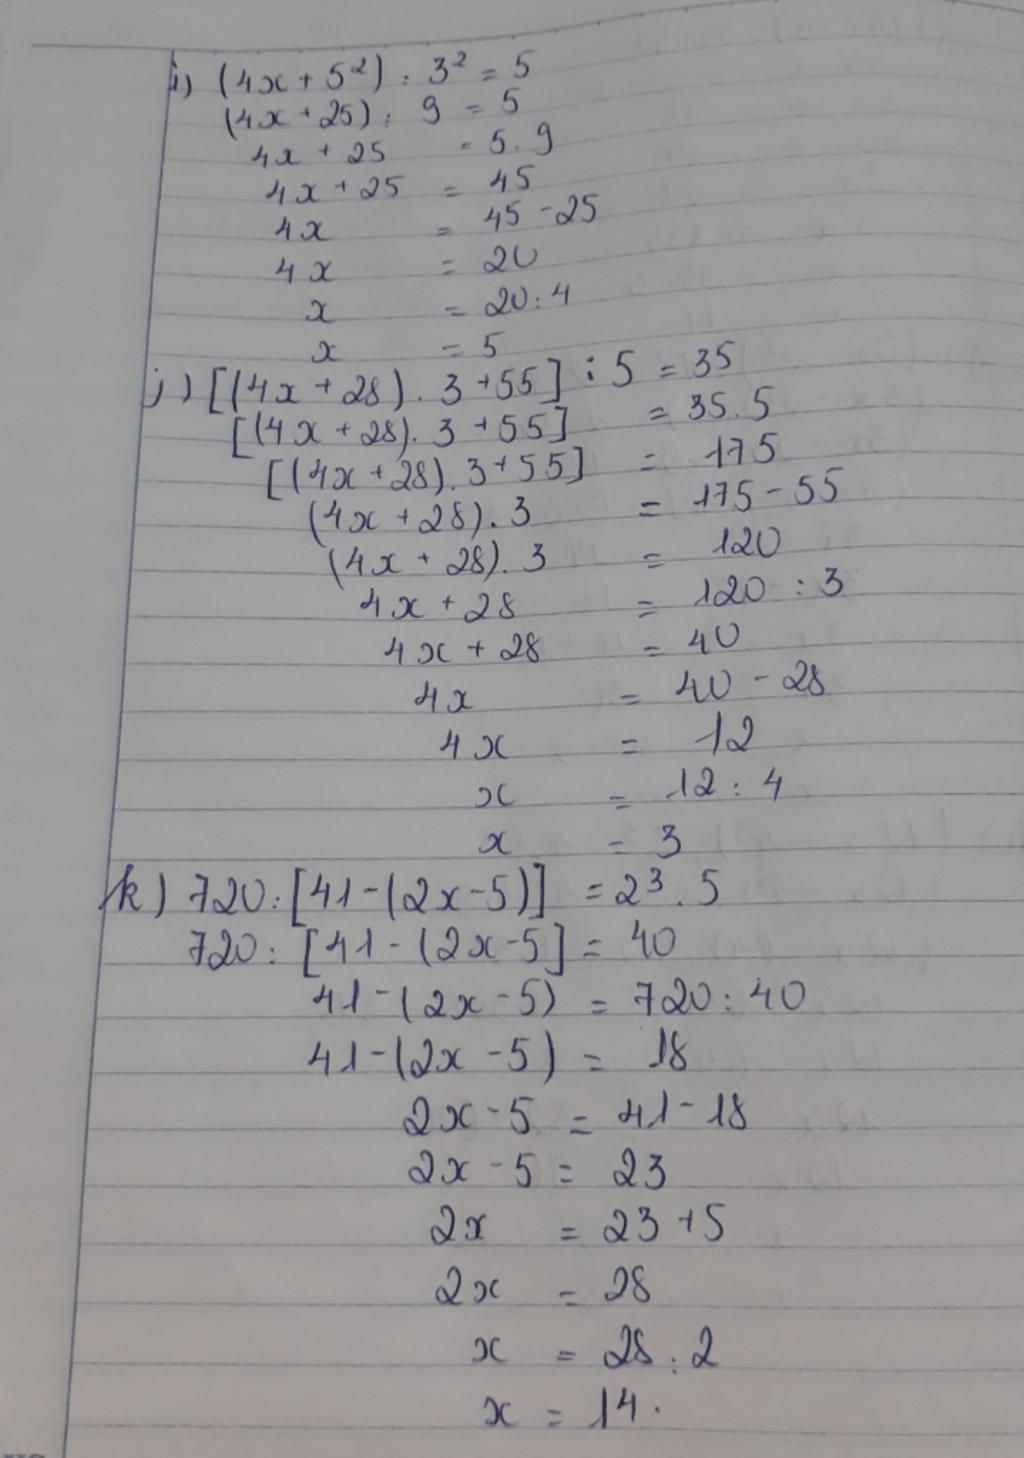 i) (4x + 5²) : 3² = 5
(4x + 25) : 9 = 5
4x + 25 = 5.9
4x + 25 = 45
4x = 45 - 25
4x = 20
x = 20 : 4
x = 5
j) [(4x + 28) . 3 + 55] : 5 = 35
[(4x + 28) . 3 + 55] = 35.5
[(4x + 28) . 3 + 55] = 175
(4x + 28) . 3 = 175 - 55
(4x + 28) . 3 = 120
4x + 28 = 120 : 3
4x + 28 = 40
4x = 40 - 28
4x = 12
x = 12 : 4
x = 3
k) 720 : [41 - (2x - 5)] = 2³ . 5
720 : [41 - (2x - 5] = 40
41 - (2x - 5) = 720 : 40
41 - (2x - 5) = 18
2x - 5 = 41 - 18
2x - 5 = 23
2x = 23 + 5
2x = 28
x = 28 : 2
x = 14 .